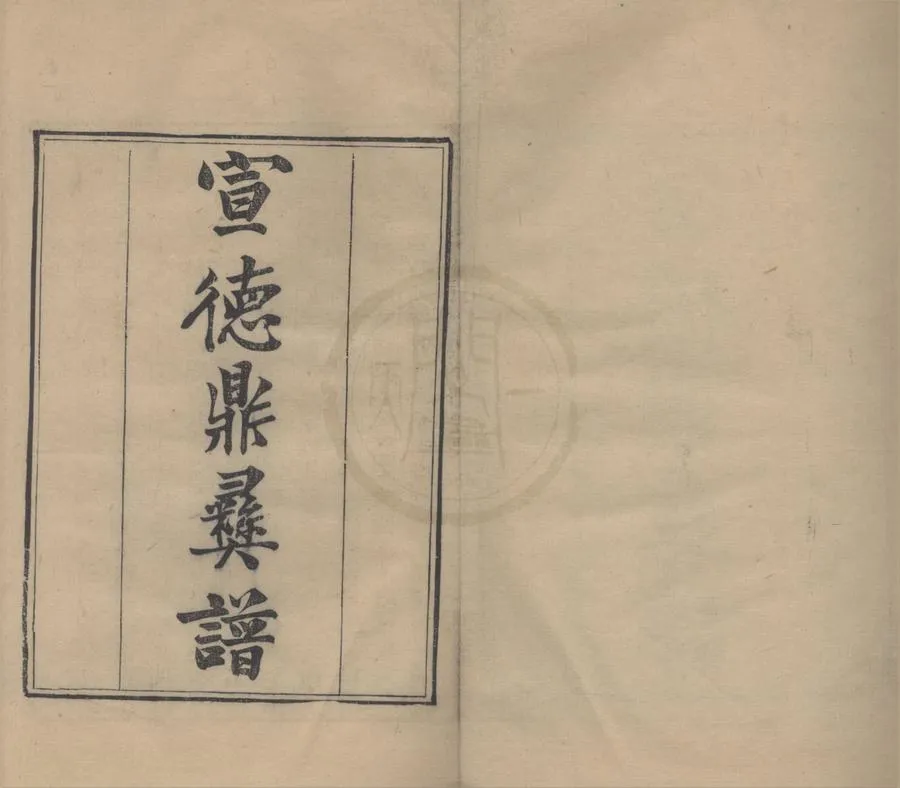 宣德鼎彛譜